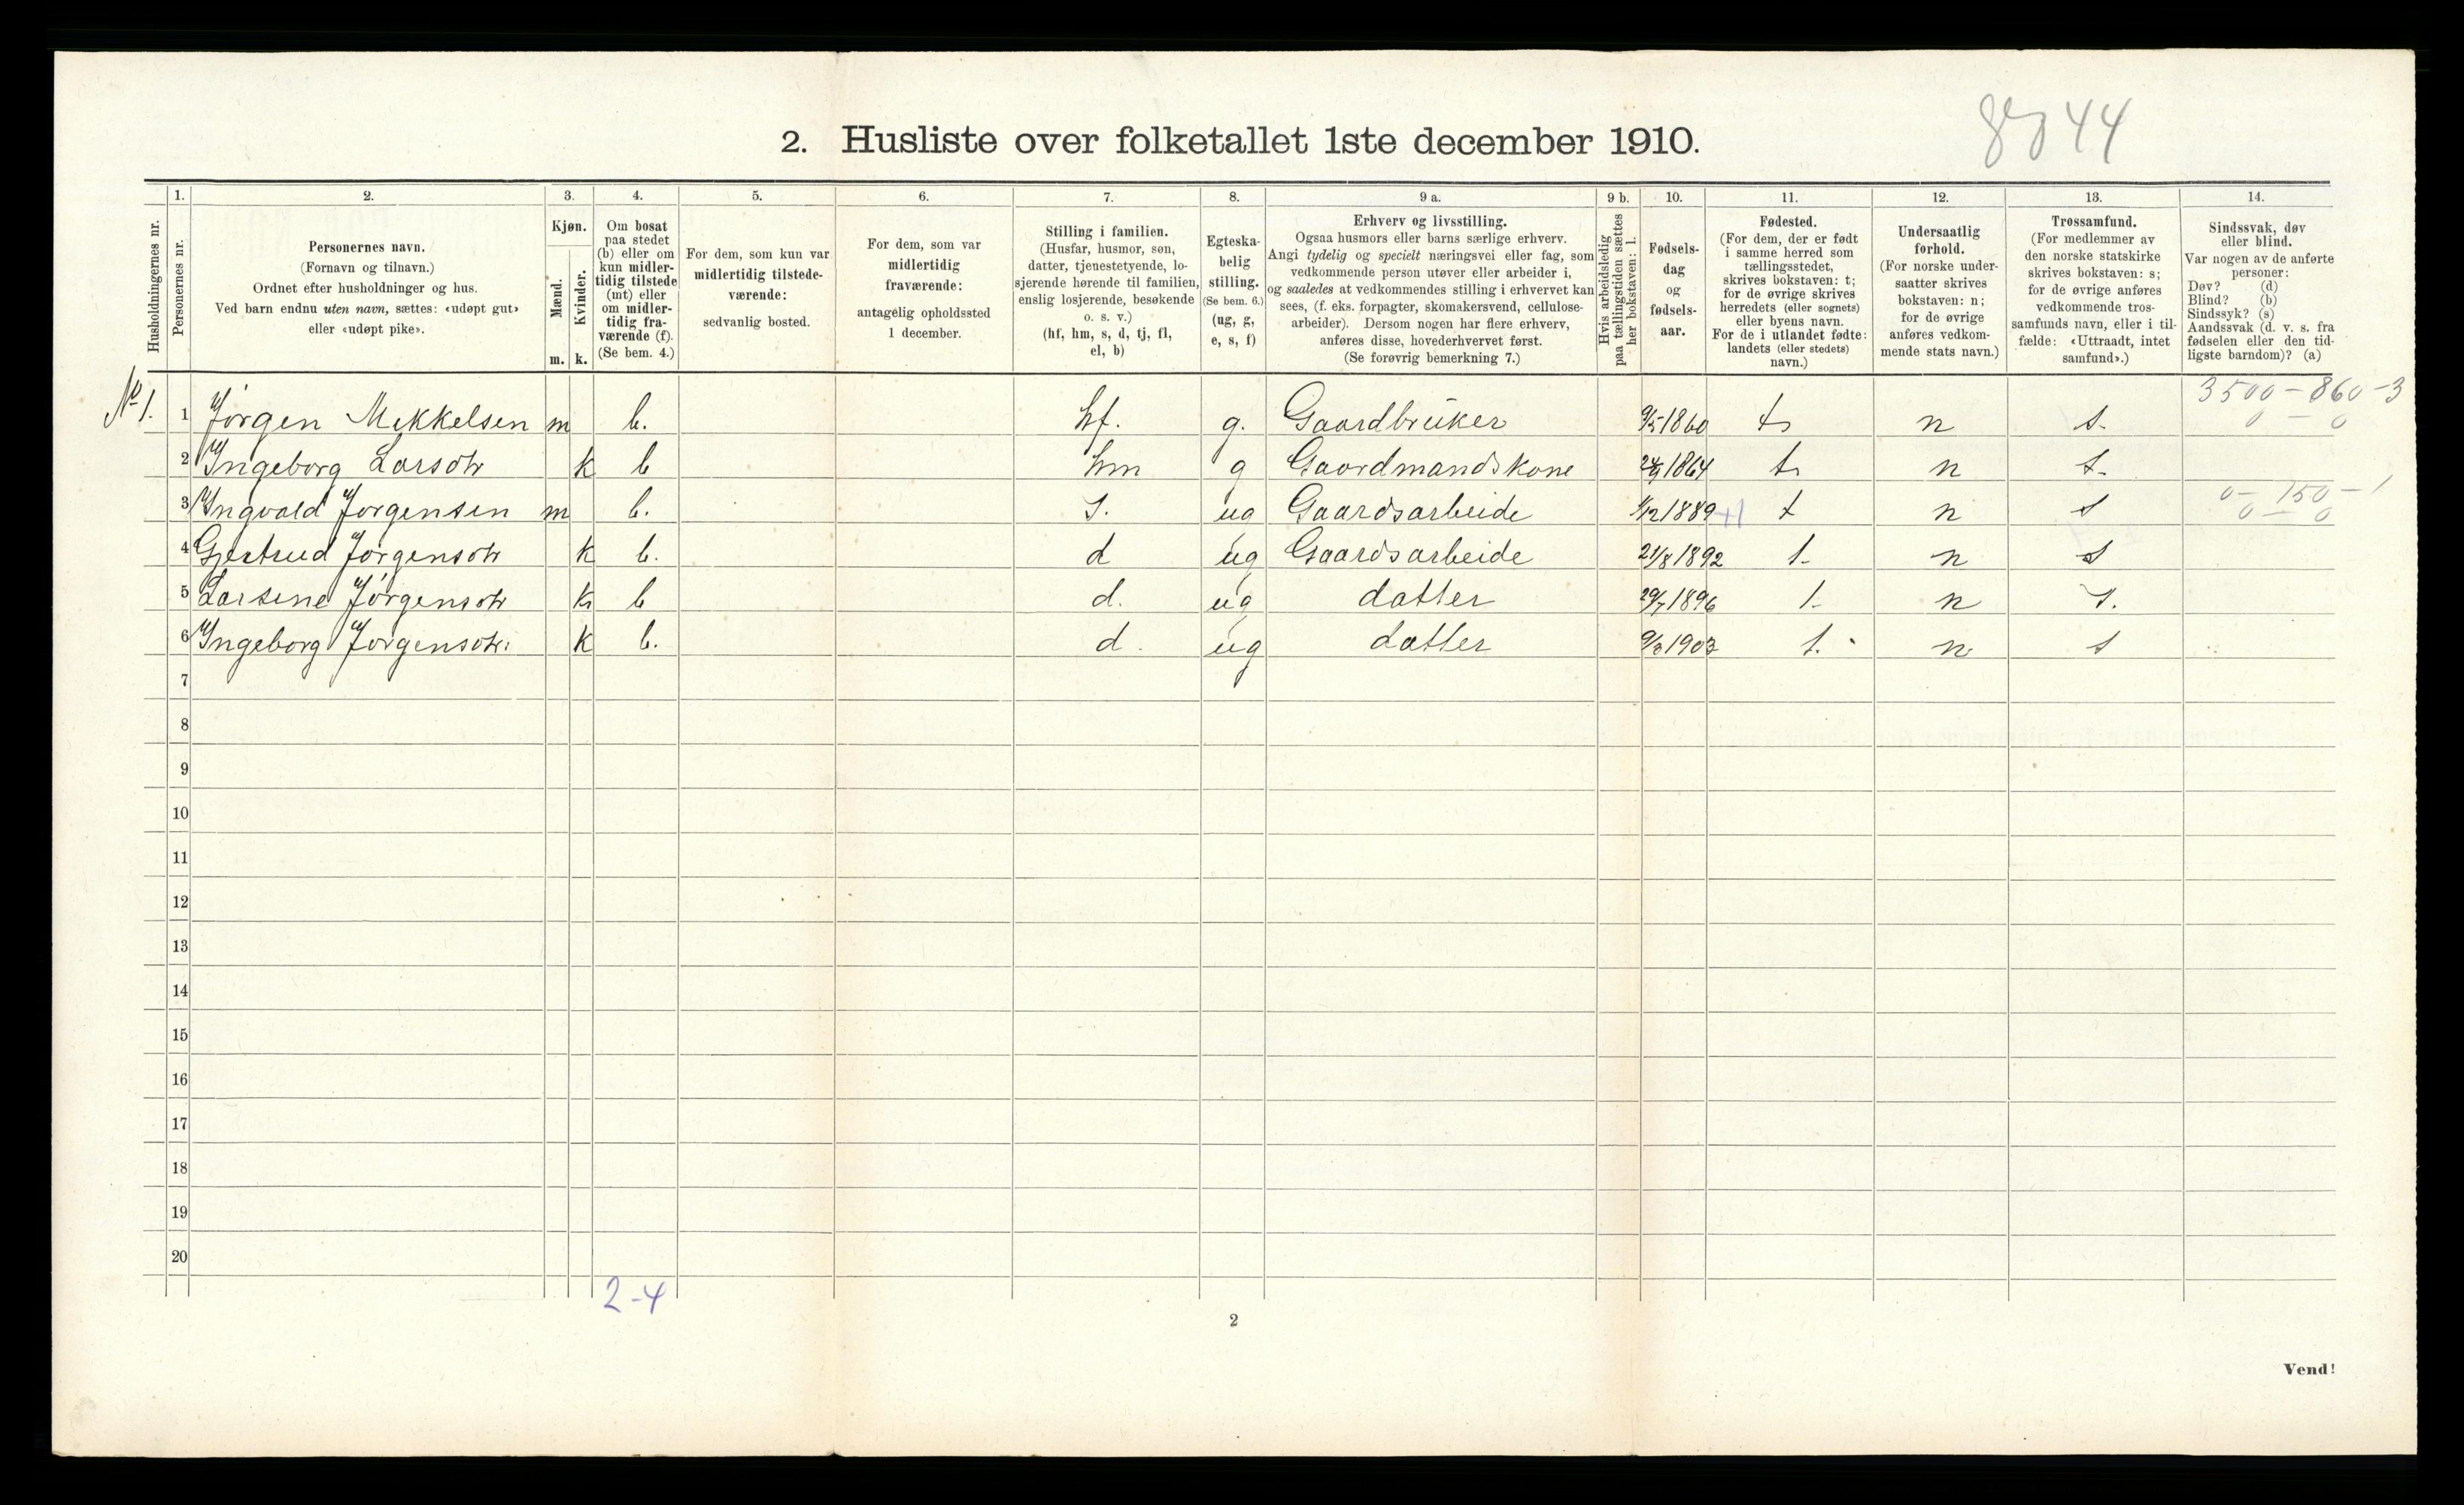 8044
2. Husliste over folketallet 1ste december 1910.
1. 2. 3. 4. 5. 6. 7. 8. 9 a. 9 b. 10. 11. 12. 13. 14.
Husholdningernes nr.
Personernes nr.
Personernes navn.
(Fornavn og tilnavn.)
Ordnet efter husholdninger og hus.
Ved barn endnu uten navn, sættes: «udøpt gut»
eller «udøpt pike».
Kjøn.
Mænd.
Kvinder.
m. k.
Om bosat
paa stedet
(b) eller om
kun midler-
tidig tilstede
(mt) eller
om midler-
tidig fra-
værende (f).
(Se bem. 4.)
For dem, som kun var
midlertidig tilstede-
værende:
sedvanlig bosted.
For dem, som var
midlertidig
fraværende:
antagelig opholdssted
1 december.
Stilling i familien.
(Husfar, husmor, søn,
datter, tjenestetyende, lo-
sjerende hørende til familien,
enslig losjerende, besøkende
o. s. v.)
(hf, hm, s, d, tj, fl,
el, b)
Egteska-
belig
stilling.
(Se bem. 6.)
(ug, g,
e, s, f)
Erhverv og livsstilling.
Ogsaa husmors eller barns særlige erhverv.
Angi tydelig og specielt næringsvei eller fag, som
vedkommende person utøver eller arbeider i,
og saaledes at vedkommendes stilling i erhvervet kan
sees, (f. eks. forpagter, skomakersvend, cellulose-
arbeider). Dersom nogen har flere erhverv,
anføres disse, hovederhvervet først.
(Se forøvrig bemerkning 7.)
Hvis arbeidsledig
paa tællingstiden sættes
her bokstaven: l.
Fødsels-
dag
og
fødsels-
aar.
Fødested.
(For dem, der er født
i samme herred som
tællingsstedet,
skrives bokstaven: t;
for de øvrige skrives
herredets (eller sognets)
eller byens navn.
For de i utlandet fødte:
landets (eller stedets)
navn.)
Undersaatlig
forhold.
(For norske under-
saatter skrives
bokstaven: n;
for de øvrige
anføres vedkom-
mende stats navn.)
Trossamfund.
(For medlemmer av
den norske statskirke
skrives bokstaven: s;
for de øvrige anføres
vedkommende tros-
samfunds navn, eller i til-
fælde: «Uttraadt, intet
samfund».)
Sindssvak, døv
eller blind.
Var nogen av de anførte
personer:
Døv? (d)
Blind? (b)
Sindssyk? (s)
Aandssvak (d. v. s. fra
fødselen eller den tid-
ligste barndom)? (a)
3500-860-3
0 - 0
No 1. 1 Jørgen Mikkelsen m b. hf. g. Gaardbruker 9/5 1860 t n s.
2 Ingeborg Larsdtr k b hm g Gaardmandskone 1864 t n s.
0-150-1
0 - 0
3 Ingvald Jørgensen m b. S. ug Gaardsarbeide 1/12 1889 +1 t n s
4 Gjertrud Jørgensdtr k b. d ug Gaardsarbeide 21/8 1892 t. n s
5 Larsine Jørgensdtr k b d. ug datter 29/7 1896 t. n s.
6 Ingeborg Jørgensdtr. k b. d. ug datter 9/3 1903 t. n s
7
8
9
10
11
12
13
14
15
16
17
18
19
20
2-4
2
Vend!